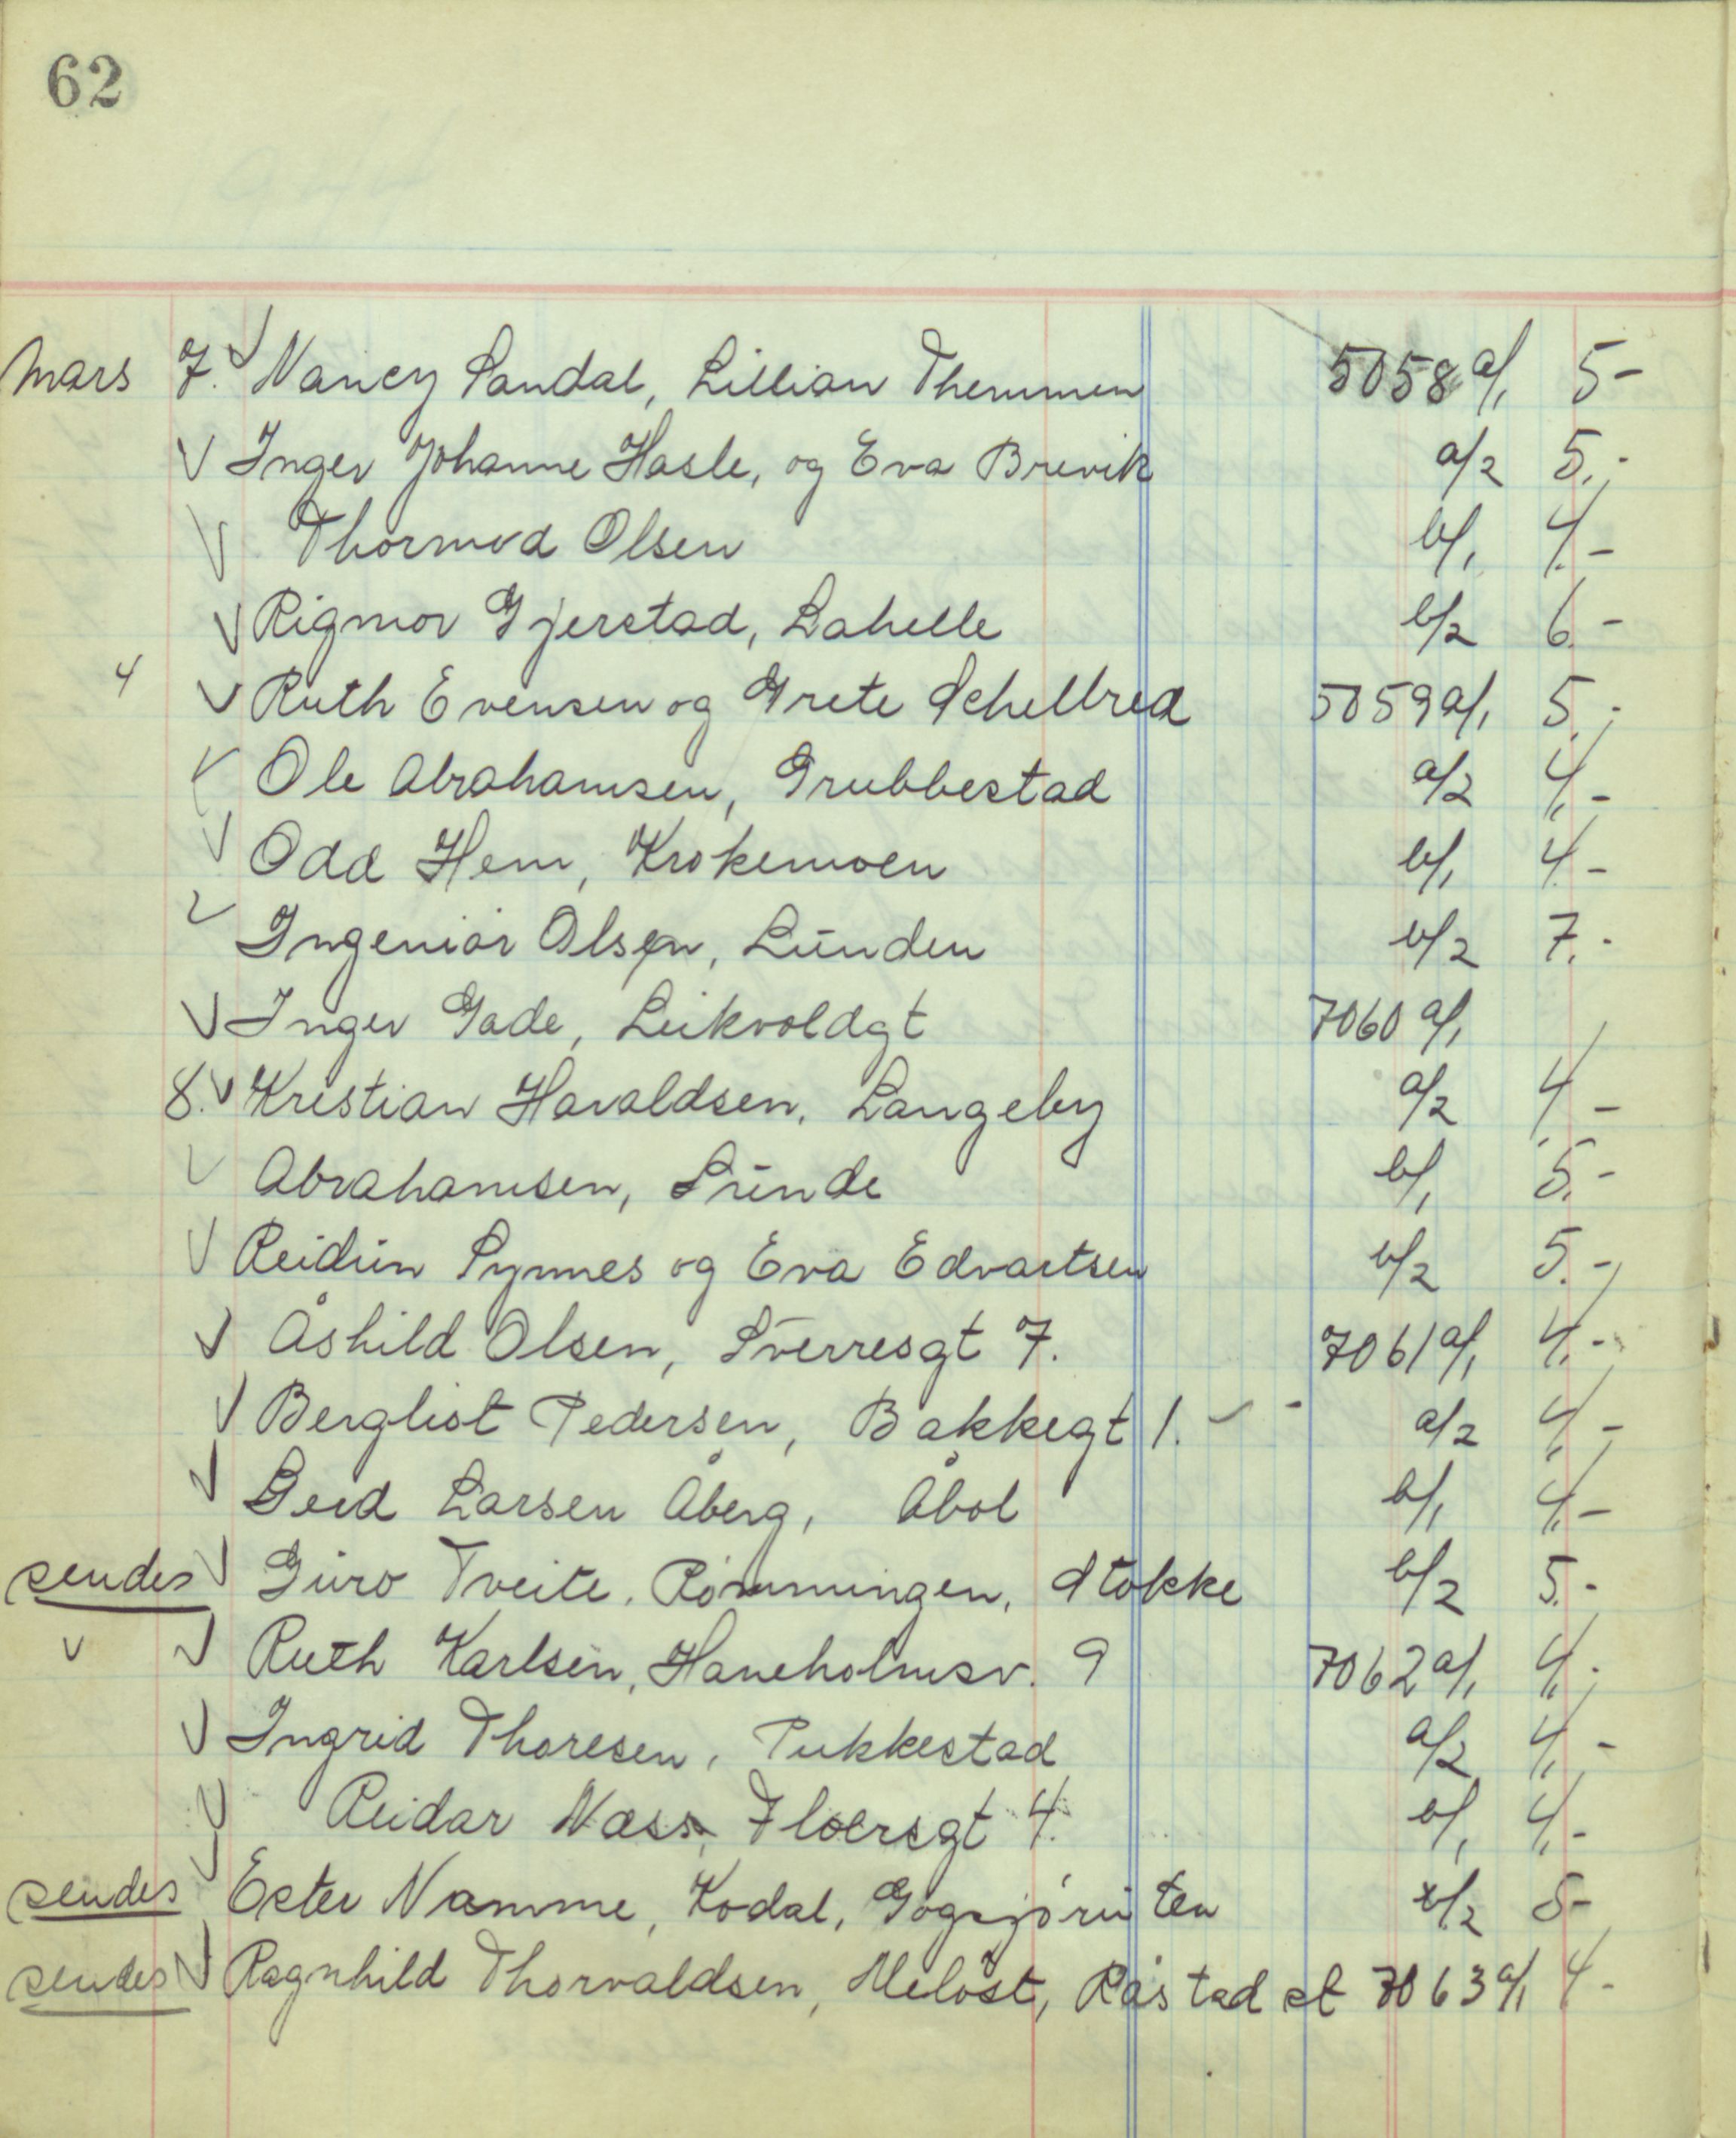 62
Mars 7. Nancy Sandal, Lillian Themmen 5058 a/1 5-
Inger Johanne Hasle, og Eva Brevik a/2 5.-
Thormod Olsen b/1 4.-
Rigmor Gjerstad, Lahelle b/2 6.-
4 Ruth Evensen og Grete Schelbred 5059 a/1 5.-
Ole Abrahamsen, Grubbestad a/2 4.-
Odd Hem, Krokemoen b/1 4.-
Ingeniør Olsen, Lunden b/2 7.-
Inger Gade, Leikvoldgt 7060 a/1
8. Kristian Haraldsen, Langeby a/2 4.-
Abrahamsen, Lunde b/1 5.-
Reidun Synnes og Eva Edvartsen b/2 5.-
Åshild Olsen, Sverresgt 7. 7061 a/1 4.-
Bergliot Pedersen, Bakkegt 1. a/2 4.-
Gerd Larsen Åberg, Åbol b/1 4.-
sendes Guro Tveite, Rømmingen, Stokke b/2 5.-
Ruth Karlsen, Haneholmsv. 9 7062 a/1 4.-
Ingrid Thoresen, Pukkestad a/2 4.-
Reidar Næss, Floersgt 4. b/1 4.-
sendes Ester Namme, Kodal, Gogsjøruten b/2 5-
sendes Ragnhild Thorvaldsen, Meløst, Råstad st 7063 a/1 4.-